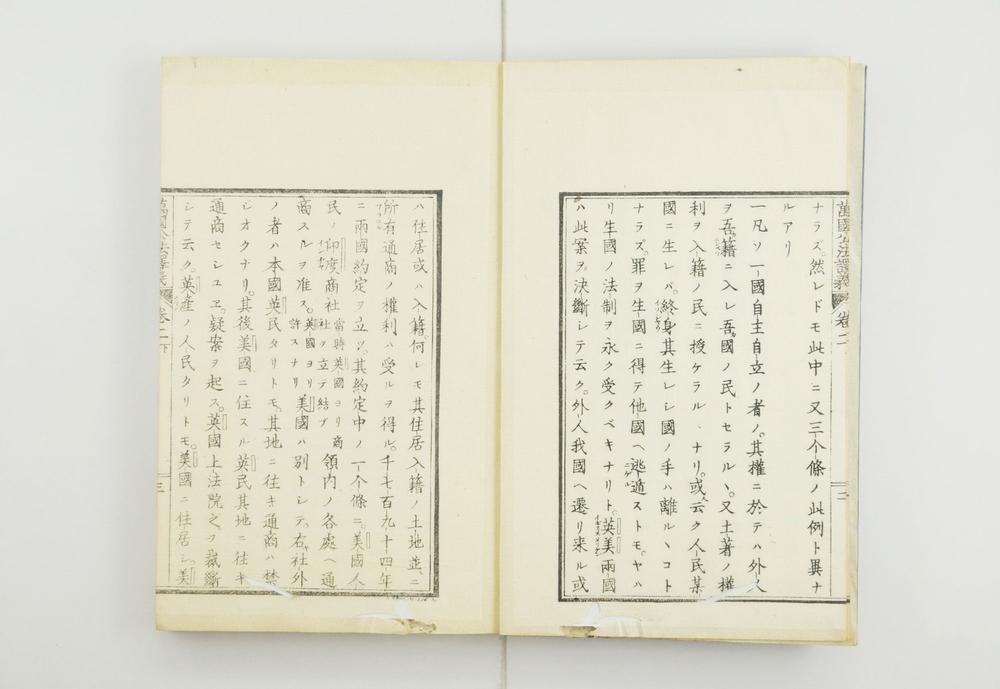 萬國公法譯義 卷二
ナラズ。然レドモ此中ニ又三个條ノ此例ト異ナ
ルアリ
一凡ソ一國自主自立ノ者ノ。其權ニ於テハ外人
ヲ吾籍ニ入レ吾國ノ民トセラルヽ。又土著ノ權
利ヲ入籍ノ民ニ授ケラルヽナリ。或云ク人民某
國ニ生レバ。終身其生レシ國ノ手ハ離ルヽコト
ナラズ。罪ヲ生國ニ得テ他國ヘ逃遁ストモ。ヤハ
リ生國ノ法制ヲ永ク受クベキナリト。英美兩國
ハ此案ヲ。決斷シテ云ク。外人我國ヘ遷リ来ル或
ハ住居或ハ入籍何レモ其住居入籍ノ土地並ニ
所有通商ノ權利ハ受ルヲ得ル。千七百九十四年
ニ兩國約定ヲ立ツ。其約定中ノ一个條ニ。美國人
民ノ印度商社當時英國ヨリ商社ヲ立テ結ブ領内ノ各處ヘ通
商スルヲ准ス。英國ヨリ許スナリ美國ハ別トシテ。右社外
ノ者ハ本國英民タリトモ。其地ニ往キ通商ハ禁
シオクナリ。其後美國ニ住スル英民其地ニ往キ
通商セシユヱ。疑案ヲ起ス。英國上法院之ヲ裁斷
シテ云ク。英産ノ人民タリトモ。美國ニ住居シ。美
萬國公法譯義 卷二下 三